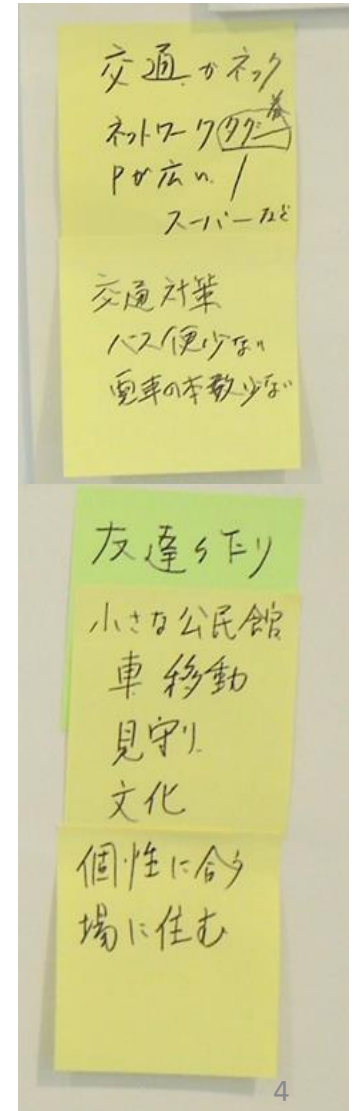 交通がネック
ネットワーク タダ券
Pが広い
スーパーなど
交通対策
バス便少ない
電車の本数少ない
友達
小さな公民館
車移動
見守り
文化
個性に合う
場に住む
4